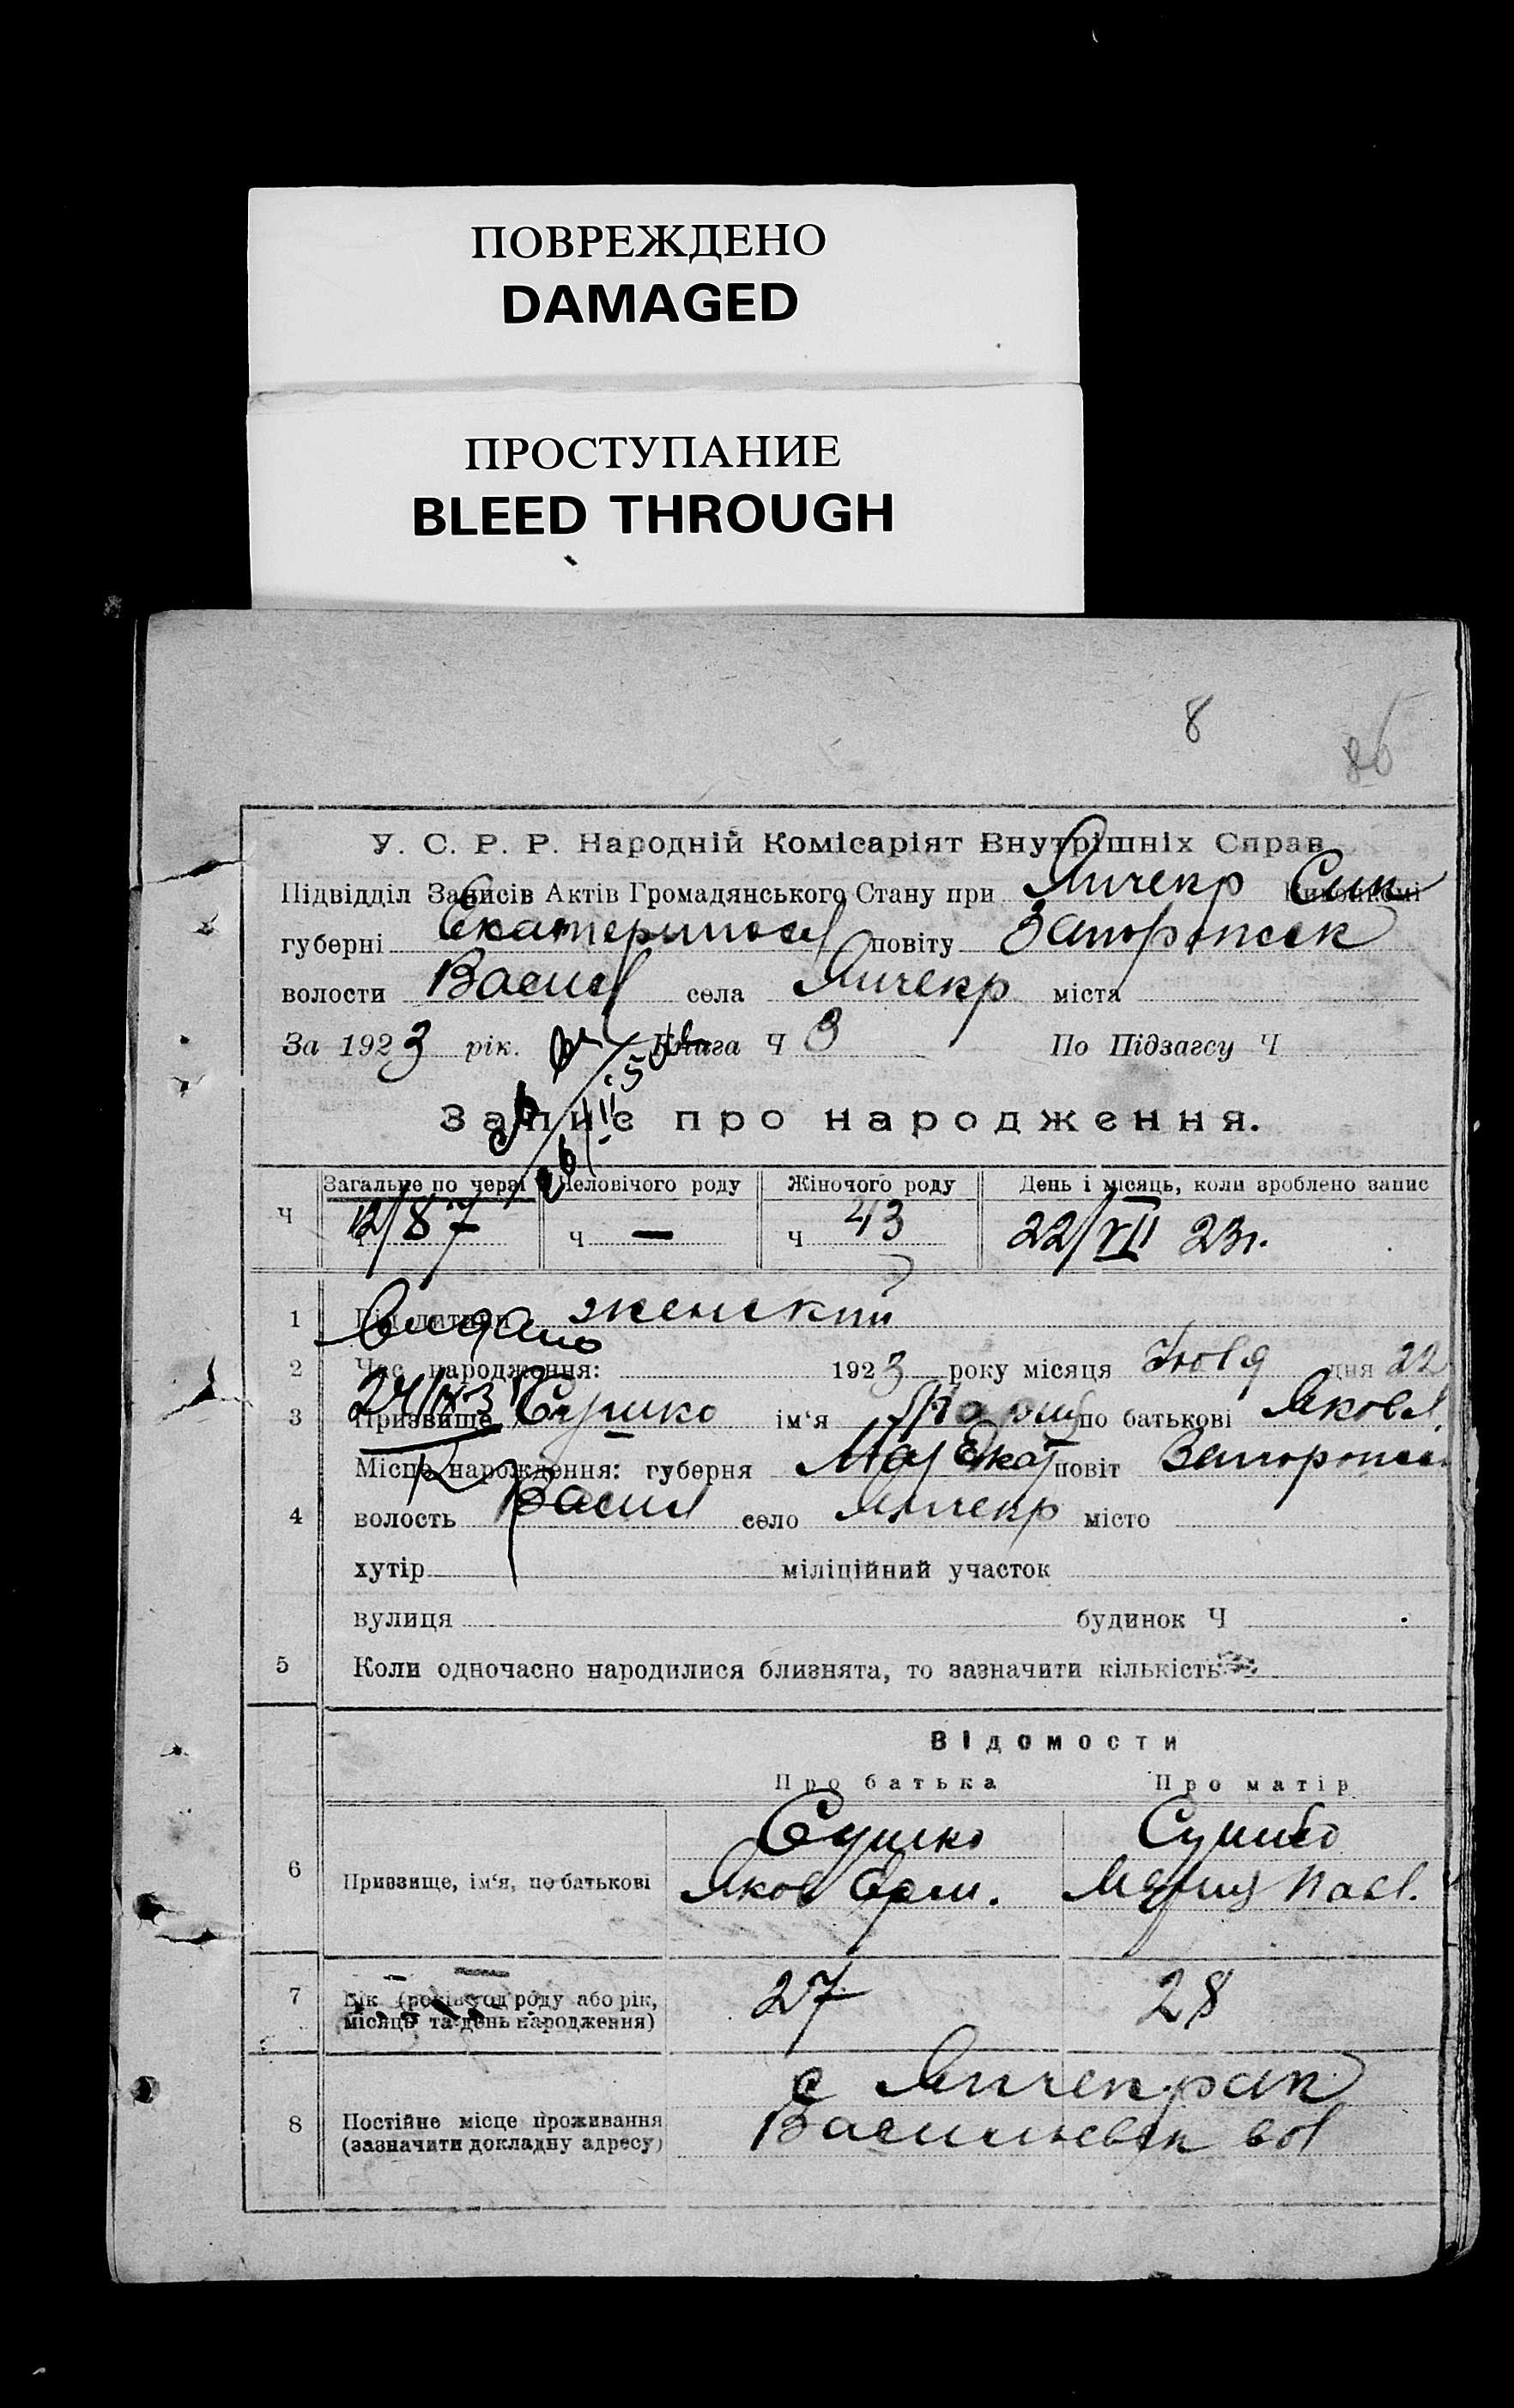 ПОВРЕЖДЕНО
DAMAGED
ПРОСТУПАНИЕ
BLEED THROUGH
8
У. С. Р. Р. Народній Комісаріят Внутрішніх Справ
Підвідділ Записів Актів Громадянського Стану при Янчекр
губерні Екатериносл повіту Запорожск
волости Васил села Янчекр міста
За 1923 рік. Книга Ч 3 По Підзагсу Ч
Запис про народження.
Загальне по черзі Человічого роду Жіночого роду День і місяць, коли зроблено запис
Ч 12/87 Ч — Ч 43 22/VII 23г.
1 женский
Видано
2 Час народження: 1923 року місяця Июля дня 22
3 Призвище Сушко ім'я по батькові Яковл.
Місце народження: губерня повіт Запорожск
4 волость Васил село Янчекр місто
хутір міліційний участок
вулиця будинок Ч
5 Коли одночасно народилися близнята, то зазначити кількість
Відомости
Про батька Про матір
Сушко Сушко
6 Призвище, ім'я, по батькові Яков Мария Павл.
7 Вік (років од роду або рік, 27 28
місяць та день народження)
с Янчекрак
8 Постійне місце проживання Васильевск вол
(зазначити докладну адресу)